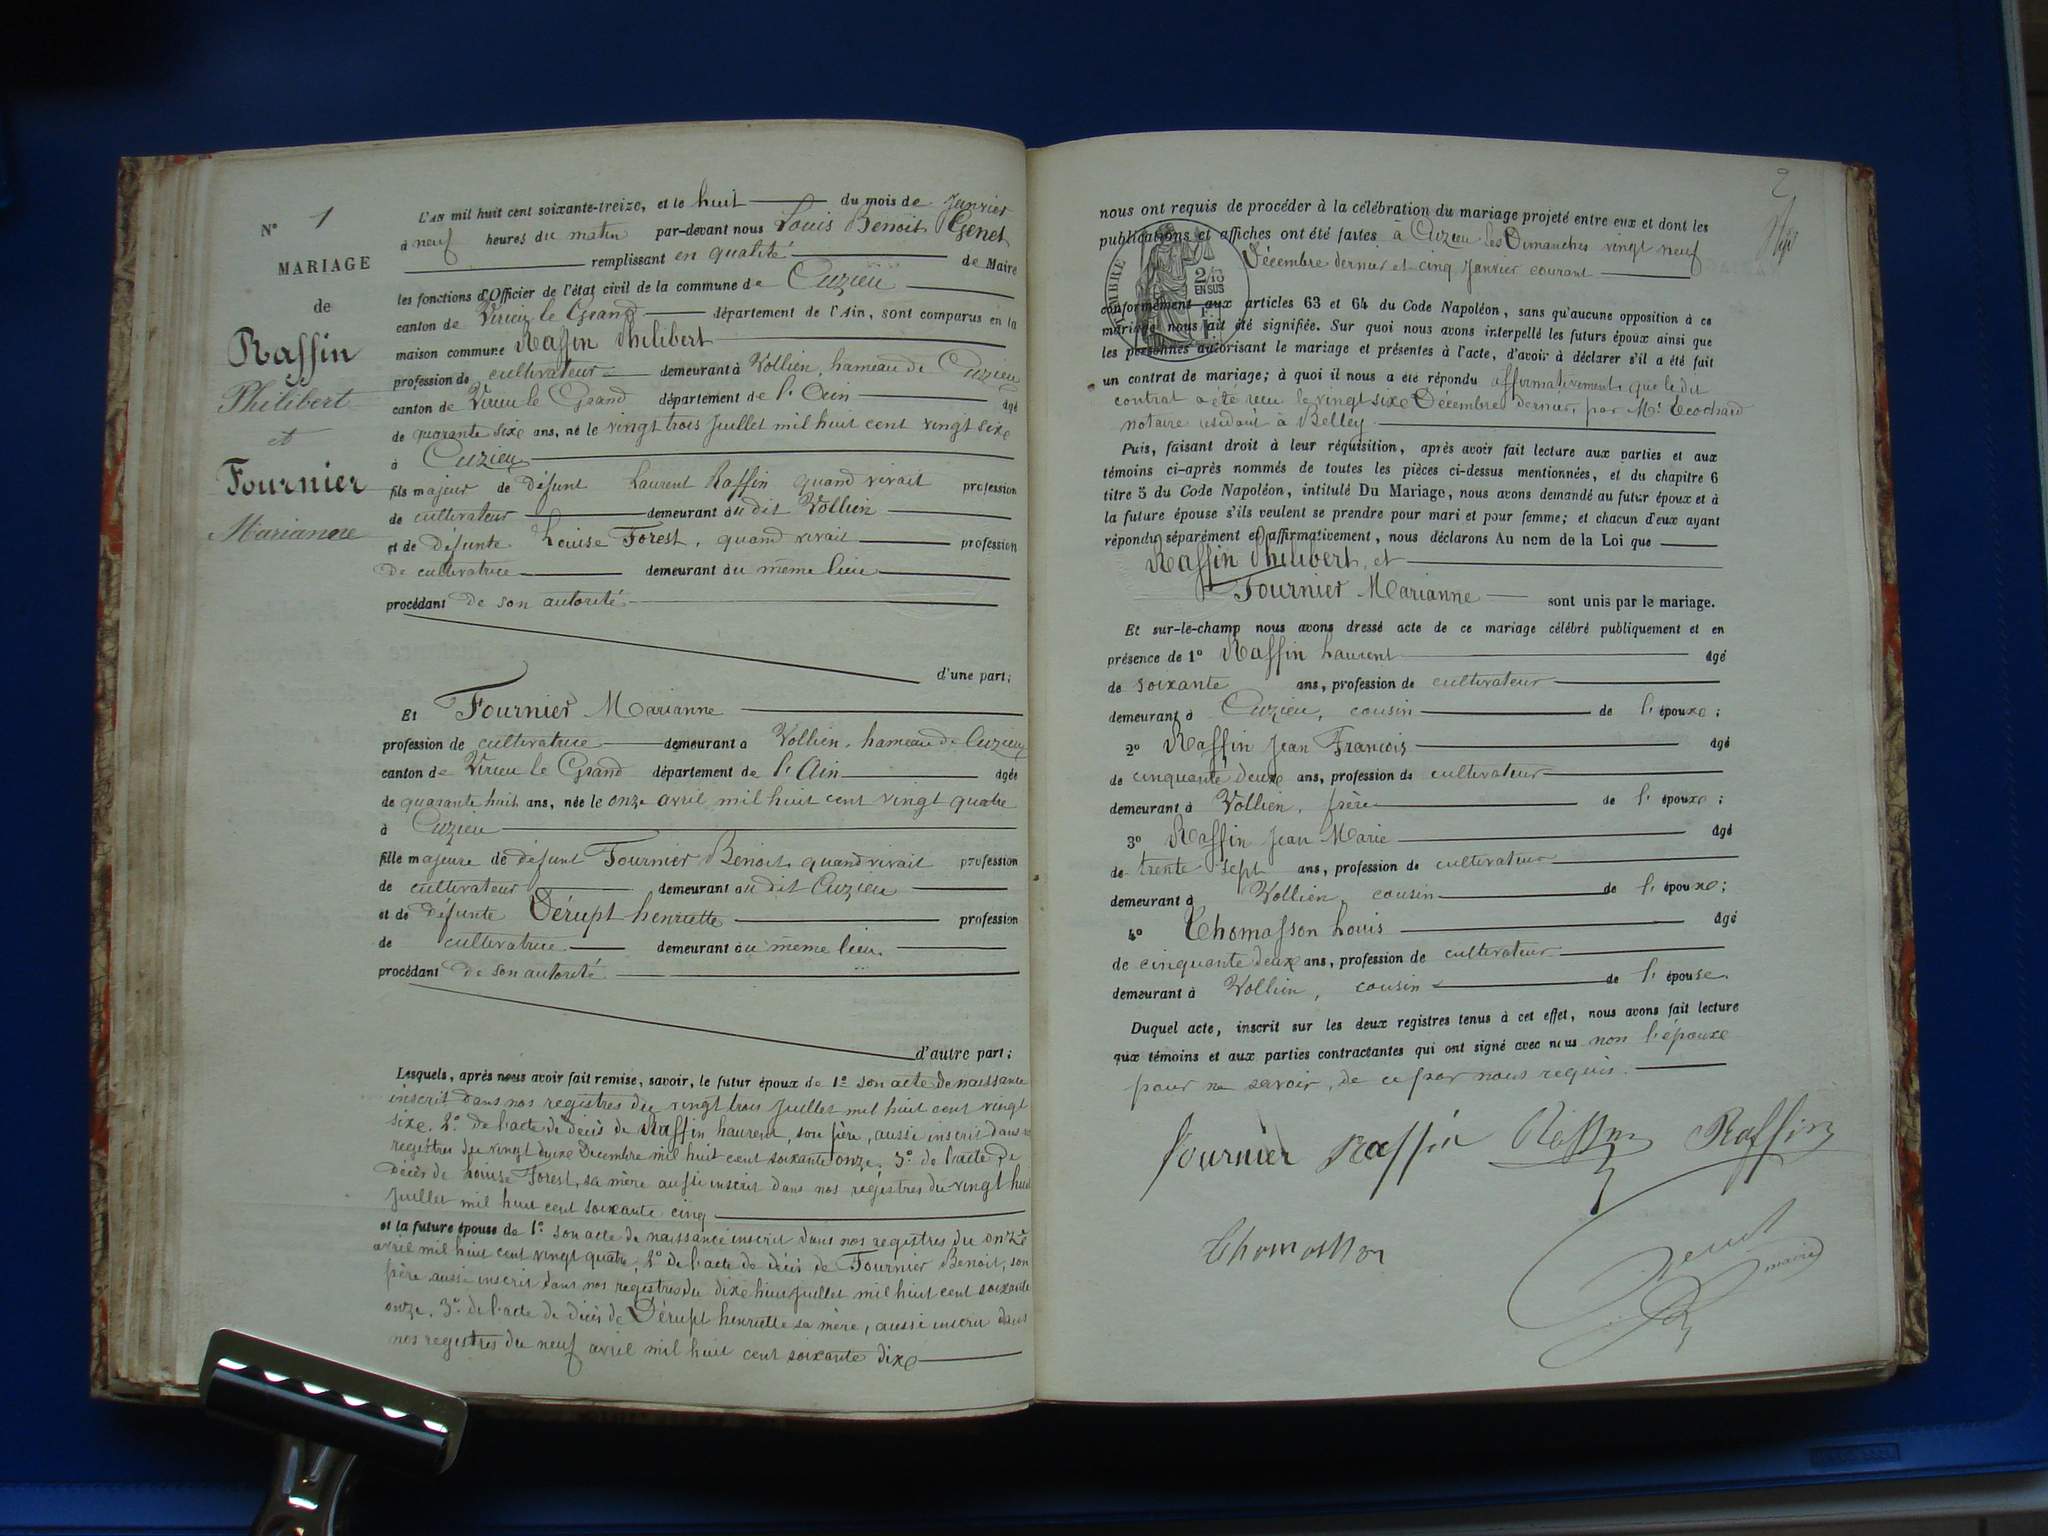 N° 1
MARIAGE
de
Raffin
Philibert
et
Fournier
Marianne
L'AN mil huit cent soixante-treize, et le huit du mois de Janvier
à neuf heures du matin par-devant nous Louis Benoit Genet
remplissant en qualité de Maire
les fonctions d'Officier de l'état civil de la commune de Cuzieu
canton de Virieu le Grand département de l'Ain, sont comparus en la
maison commune Raffin Philibert
profession de cultivateur demeurant à Vollien, hameau de Cuzieu
canton de Virieu le Grand département de l'Ain âgé
de quarante sixe ans, né le vingt trois Juillet mil huit cent vingt sixe
à Cuzieu
fils majeur de défunt Laurent Raffin quand vivait profession
de cultivateur demeurant au dit Vollien
et de défunte Louise Forest, quand vivait profession
de cultivatrice demeurant au même lieu
procédant de son autorité
d'une part;
Et Fournier Marianne
profession de cultivatrice demeurant à Vollien, hameau de Cuzieu
canton de Virieu le Grand département de l'Ain âgée
de quarante huit ans, née le onze avril mil huit cent vingt quatre
à Cuzieu
fille majeure de défunt Fournier Benoit quand vivait profession
de cultivateur demeurant au dit Cuzieu
et de défunte Dérupt henriette profession
de cultivatrice demeurant au même lieu
procédant de son autorité
d'autre part;
Lesquels, après nous avoir fait remise, savoir, le futur époux de 1° son acte de naissance
inscrit dans nos registres du vingt trois Juillet mil huit cent vingt
sixe, 2° de l'acte de décès de Raffin Laurent, son père, aussi inscrit dans nos
registres du vingt deuxe Décembre mil huit cent soixante onze, 3° de l'acte de
décès de Louise Forest, sa mère aussi inscrit dans nos régistres du vingt huit
Juillet mil huit cent soixante cinq
et la future épouse de 1° son acte de naissance inscrit dans nos registres du onze
avril mil huit cent vingt quatre, 2° de l'acte de décès de Fournier Benoit, son
père aussi inscrit dans nos registres du dixe huit Juillet mil huit cent soixante
onze, 3° de l'acte de décès de Dérupt henriette sa mère, aussi inscrit dans
nos registres du neuf avril mil huit cent soixante dixe
2
nous ont requis de procéder à la célébration du mariage projeté entre eux et dont les
publications et affiches ont été faites à Cuzieu les Dimanches vingt neuf
Décembre dernier et cinq Janvier courant
TIMBRE
2/10
EN SUS
1 F.
conformément aux articles 63 et 64 du Code Napoléon, sans qu'aucune opposition à ce
mariage nous ait été signifiée. Sur quoi nous avons interpellé les futurs époux ainsi que
les personnes autorisant le mariage et présentes à l'acte, d'avoir à déclarer s'il a été fait
un contrat de mariage; à quoi il nous a été répondu affirmativement que le dit
contrat a été reçu le vingt sixe Décembre dernier, par Me
notaire résidant à Belley
Puis, faisant droit à leur réquisition, après avoir fait lecture aux parties et aux
témoins ci-après nommés de toutes les pièces ci-dessus mentionnées, et du chapitre 6
titre 5 du Code Napoléon, intitulé Du Mariage, nous avons demandé au futur époux et à
la future épouse s'ils veulent se prendre pour mari et pour femme; et chacun d'eux ayant
répondu séparément et affirmativement, nous déclarons Au nom de la Loi que
Raffin Philibert, et
Fournier Marianne sont unis par le mariage.
Et sur-le-champ nous avons dressé acte de ce mariage célébré publiquement et en
présence de 1° Raffin Laurent âgé
de soixante ans, profession de cultivateur
demeurant à Cuzieu, cousin de l'épouxe;
2° Raffin Jean François âgé
de cinquante deuxe ans, profession de cultivateur
demeurant à Vollien, frère de l'épouxe;
3° Raffin Jean Marie âgé
de trente sept ans, profession de cultivateur
demeurant à Vollien, cousin de l'épouxe;
4° Thomasson Louis âgé
de cinquante deuxe ans, profession de cultivateur
demeurant à Vollien, cousin de l'épouse.
Duquel acte, inscrit sur les deux registres tenus à cet effet, nous avons fait lecture
aux témoins et aux parties contractantes qui ont signé avec nous non l'épouxe
pour ne savoir, de ce par nous requis.
Fournier Raffin Raffin Raffin
Thomasson
Genet
maire